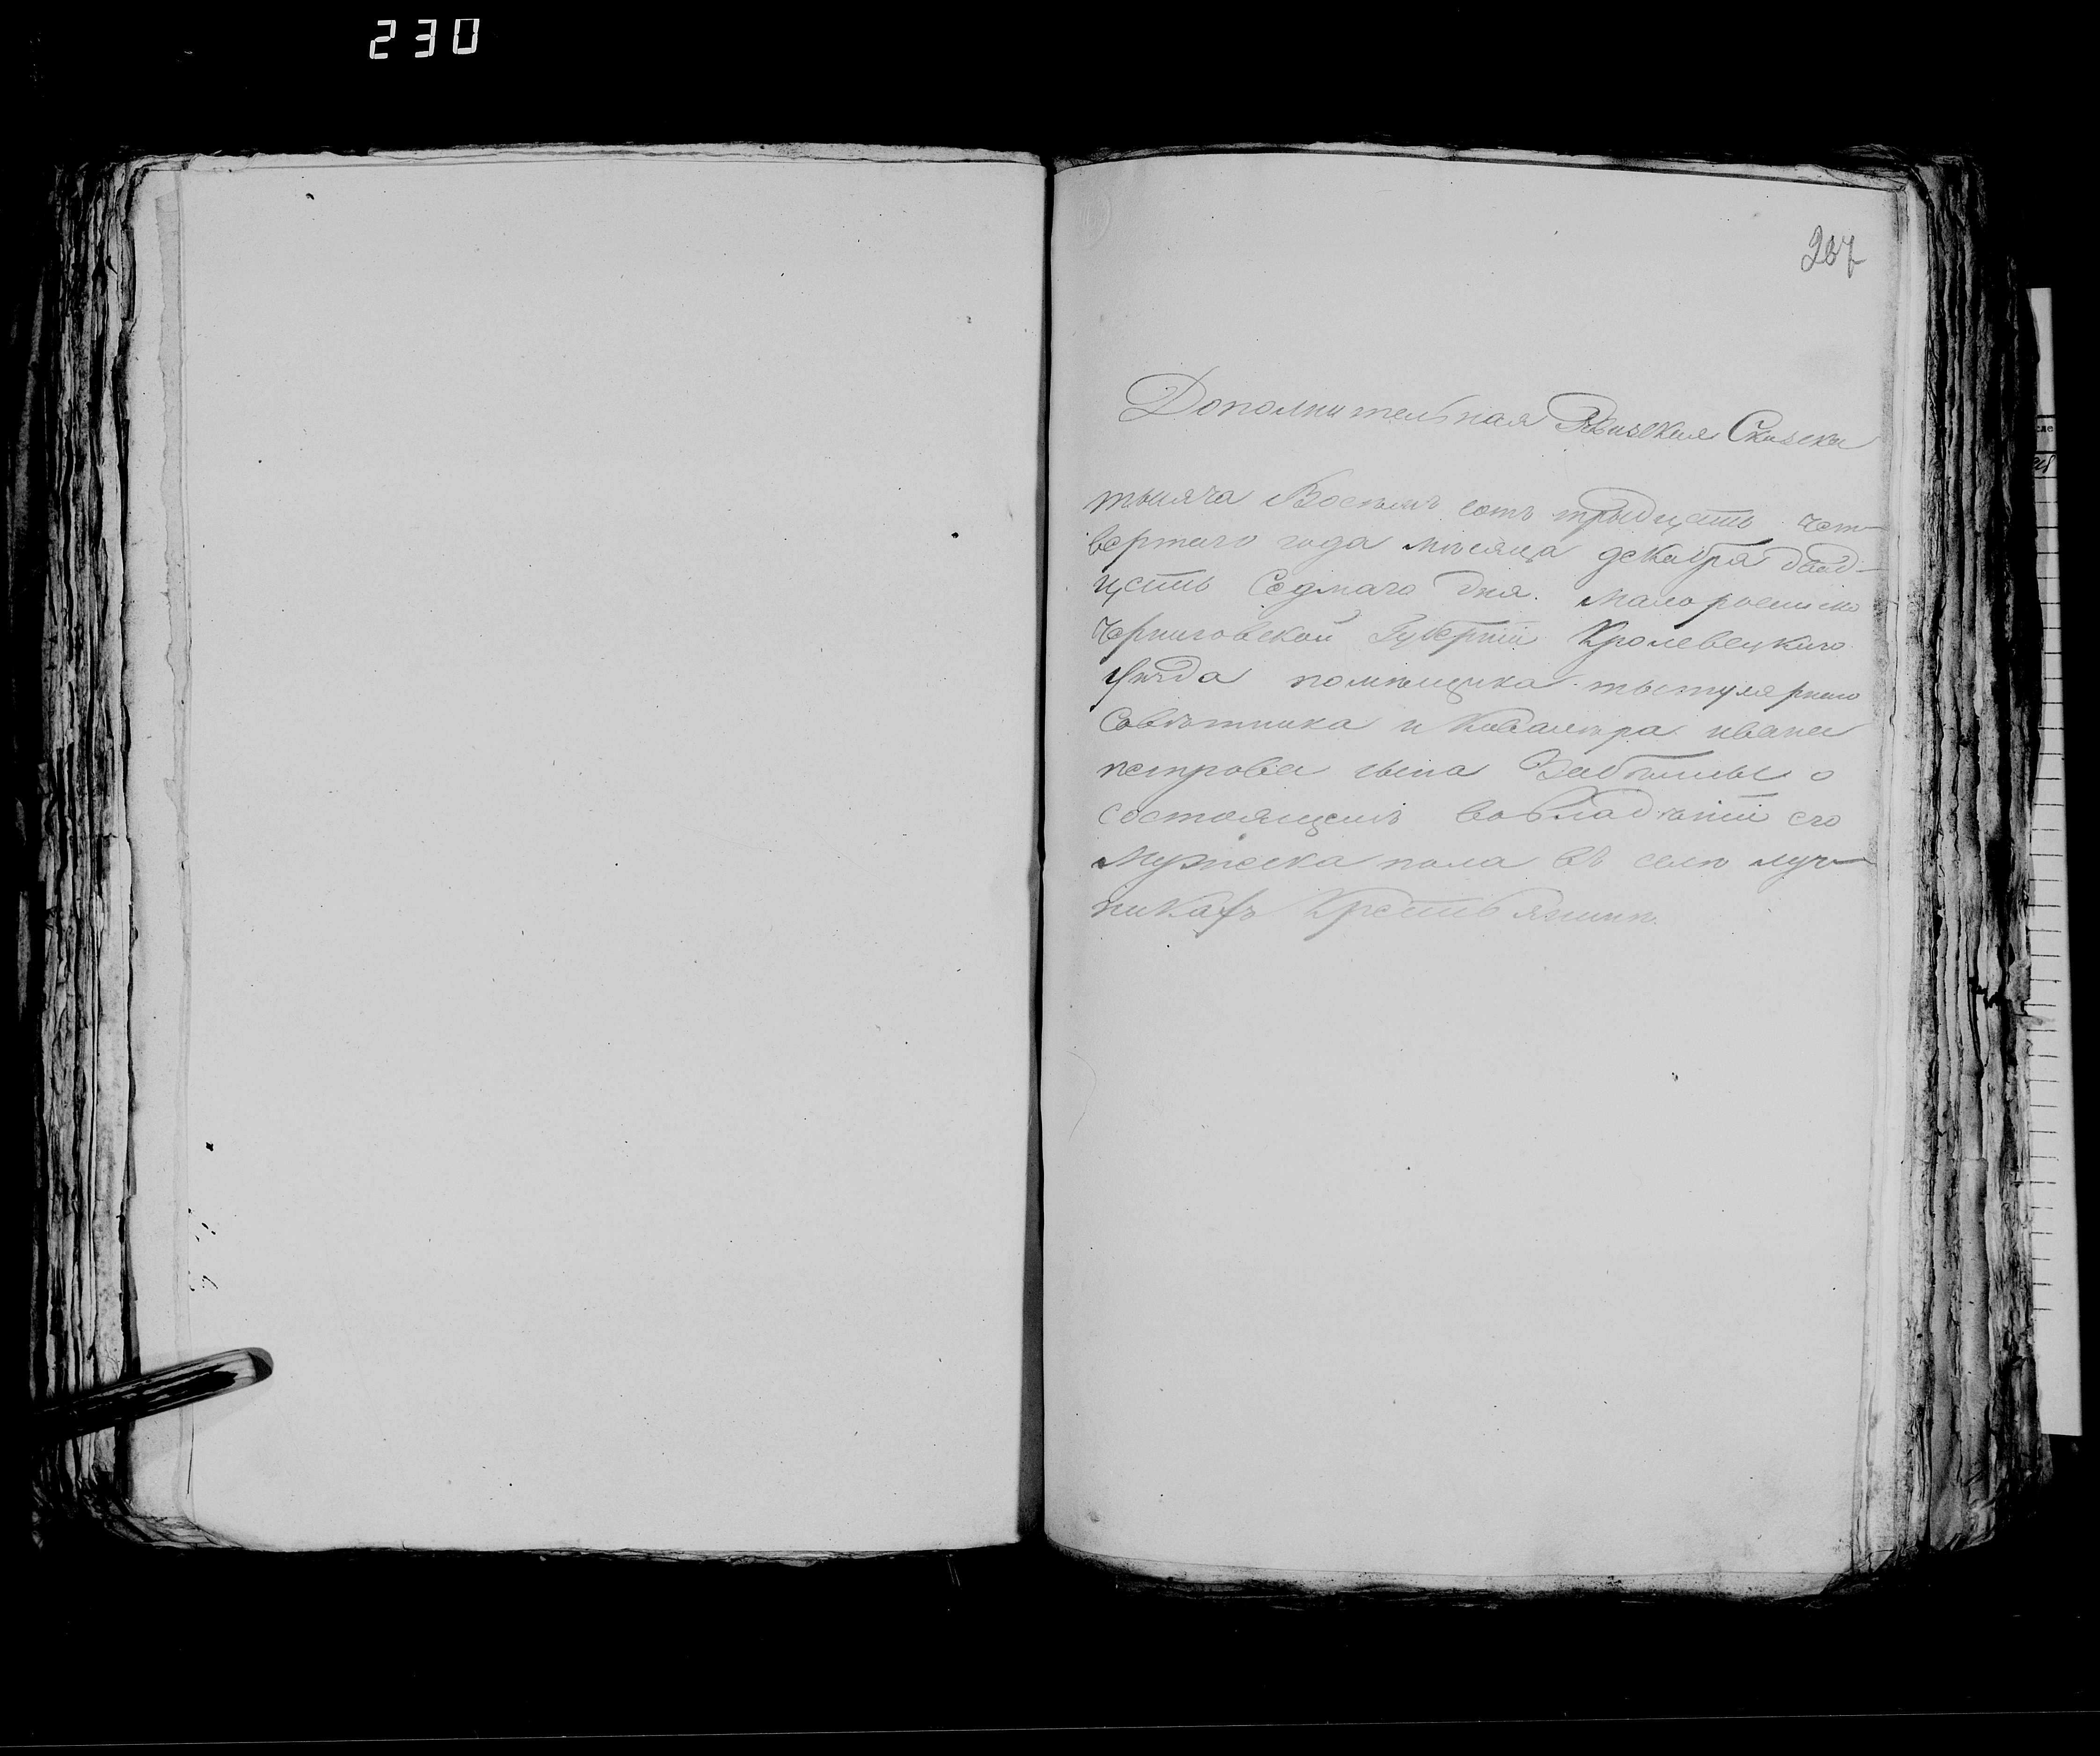 230
267
Дополнительная Ревизкая Сказка
тысяча Восемъ сотъ трыдцать чет-
вертаго года месяца декабря двад-
цать Седмаго дня. малоросииско
Черниговской Губернiи Кролевецкаго
уезда помещика тытулярнаго
Советника и Кавалера ивана
петрова сына Забелы о
состоящемъ вовладенiи его
мужеска пола въ селе луч-
никахъ Крестьянине.